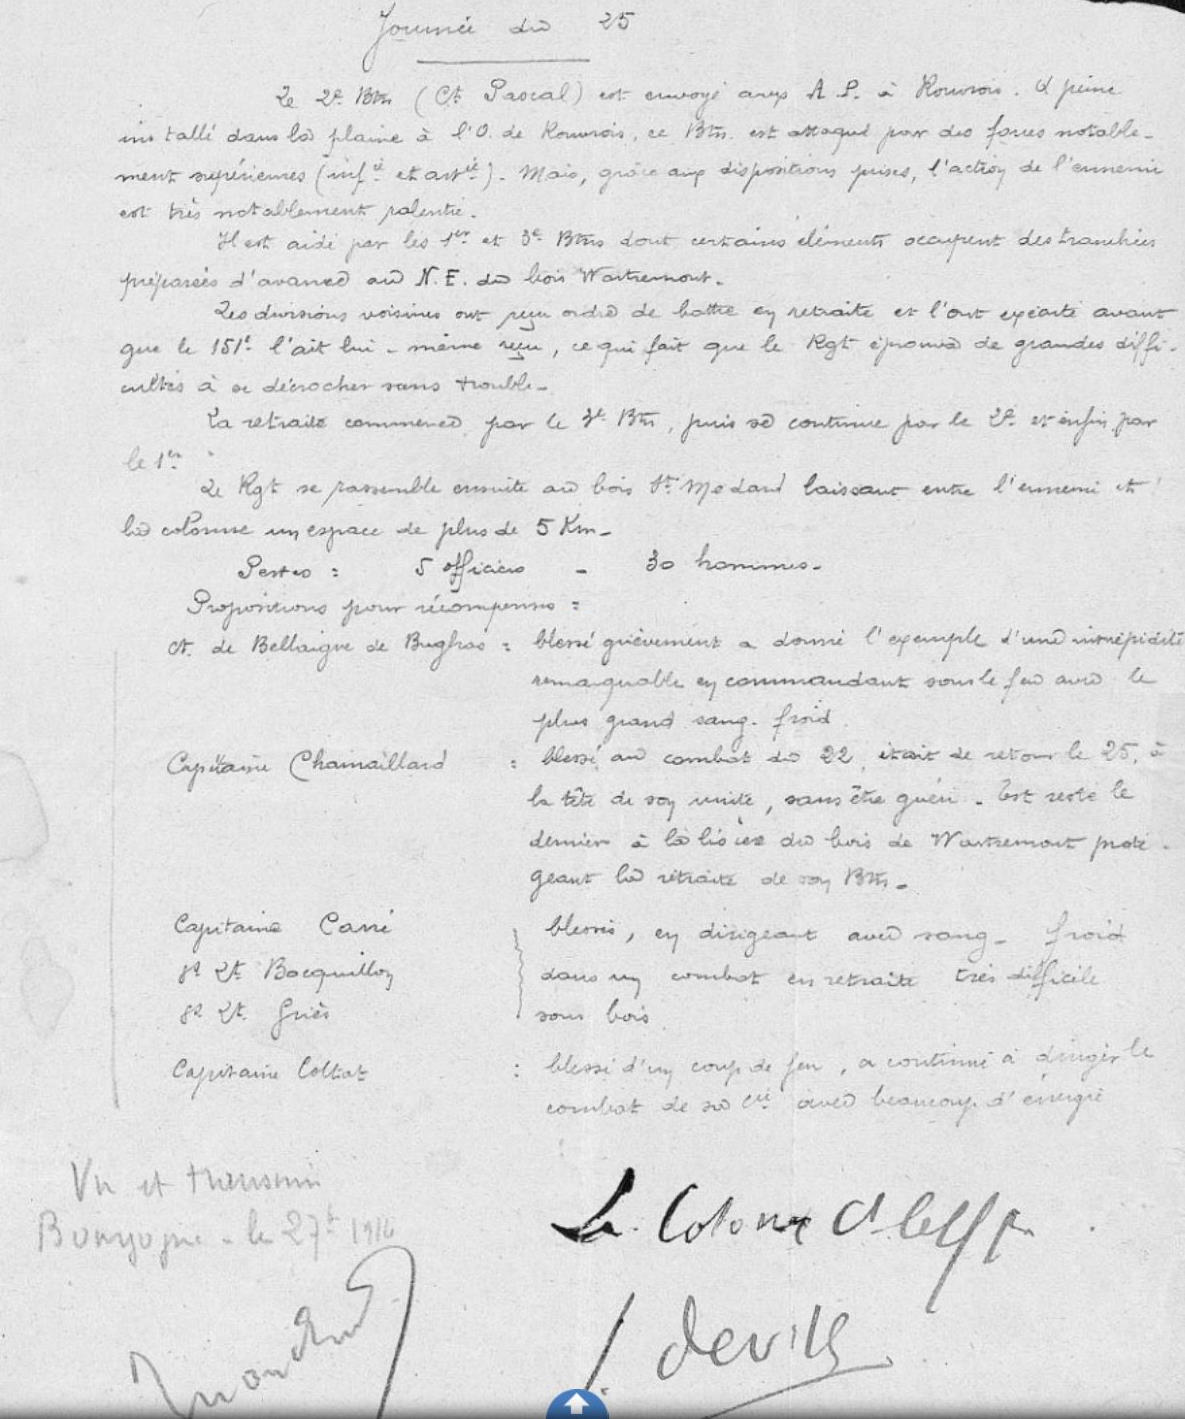 Journée du 25
Le 2e Btn (Ct Pascal) est envoyé aux A.P. à Rouvrois. A peine
installé dans la plaine à l'O. de Rouvrois, ce Btn est attaqué par des forces notable-
ment supérieures (infie et artie). Mais, grâce aux dispositions prises, l'action de l'ennemi
est très notablement ralentie.
Il est aidé par les 1er et 3e Btns dont certains éléments occupent des tranchées
préparées d'avance au N.E. du bois Warthemont.
Les divisions voisines ont reçu ordre de battre en retraite et l'ont exécuté avant
que le 151e l'ait lui-même reçu, ce qui fait que le Rgt éprouve de grandes diffi-
cultés à se décrocher sans trouble.
La retraite commence par le 3e Btn, puis se continue par le 2e et enfin par
le 1er
Le Rgt se rassemble ensuite au bois St Médard laissant entre l'ennemi et
la colonne un espace de plus de 5 Km.
Pertes : 5 officiers - 30 hommes.
Propositions pour récompenses :
Ct. de Bellaigue de Bughas : blessé grièvement a donné l'exemple d'une intrépidité
remarquable en commandant sous le feu avec le
plus grand sang-froid.
Capitaine Chamaillard : blessé au combat du 22, était de retour le 25, à
la tête de son unité, sans être guéri. Est resté le
dernier à la lisière du bois de Warthemont proté-
geant la retraite de son Btn.
Capitaine Carré
St Lt Bacquillon
St Lt. Griès
blessés, en dirigeant avec sang-froid
dans un combat en retraite très difficile
sous bois
Capitaine Coltat : blessé d'un coup de feu, a continué à diriger le
combat de sa Cie avec beaucoup d'énergie
Vu et transmis
le 27 1914
Le Colonel Ct le
Deville